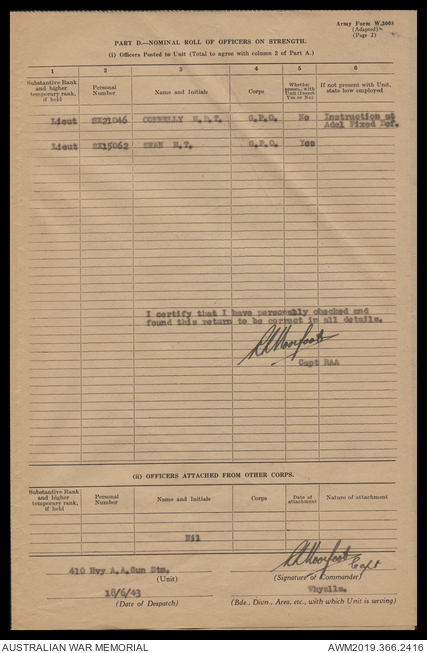 Army Form W.3008
(Adapted)
(Page 2)
PART D.—NOMINAL ROLL OF OFFICERS ON STRENGTH.
(i) Officers Posted to Unit (Total to agree with column 2 of Part A.)
1 2 3 4 5 6
Substantive Rank and higher temporary rank, if held Personal Number Name and Initials Corps Whether present with Unit (Insert Yes or No) If not present with Unit, state how employed
Lieut SX21046 CONNELLY G.P.O. No Instruction at
Adel Fixed Def.
Lieut SX15062 SWAN H.T. G.P.O. Yes
I certify that I have personally checked and
found this return to be correct in all details.
R A Moorfoot
Capt RAA
(ii) OFFICERS ATTACHED FROM OTHER CORPS.
Substantive Rank and higher temporary rank, if held Personal Number Name and Initials Corps Date of attachment Nature of attachment
Nil
R A Moorfoot Capt
410 Hvy A.A.Gun Stn.
(Unit) (Signature of Commander)
18/6/43 Whyalla.
(Date of Despatch) (Bde., Divn., Area, etc., with which Unit is serving)
AUSTRALIAN WAR MEMORIAL AWM2019.366.2416